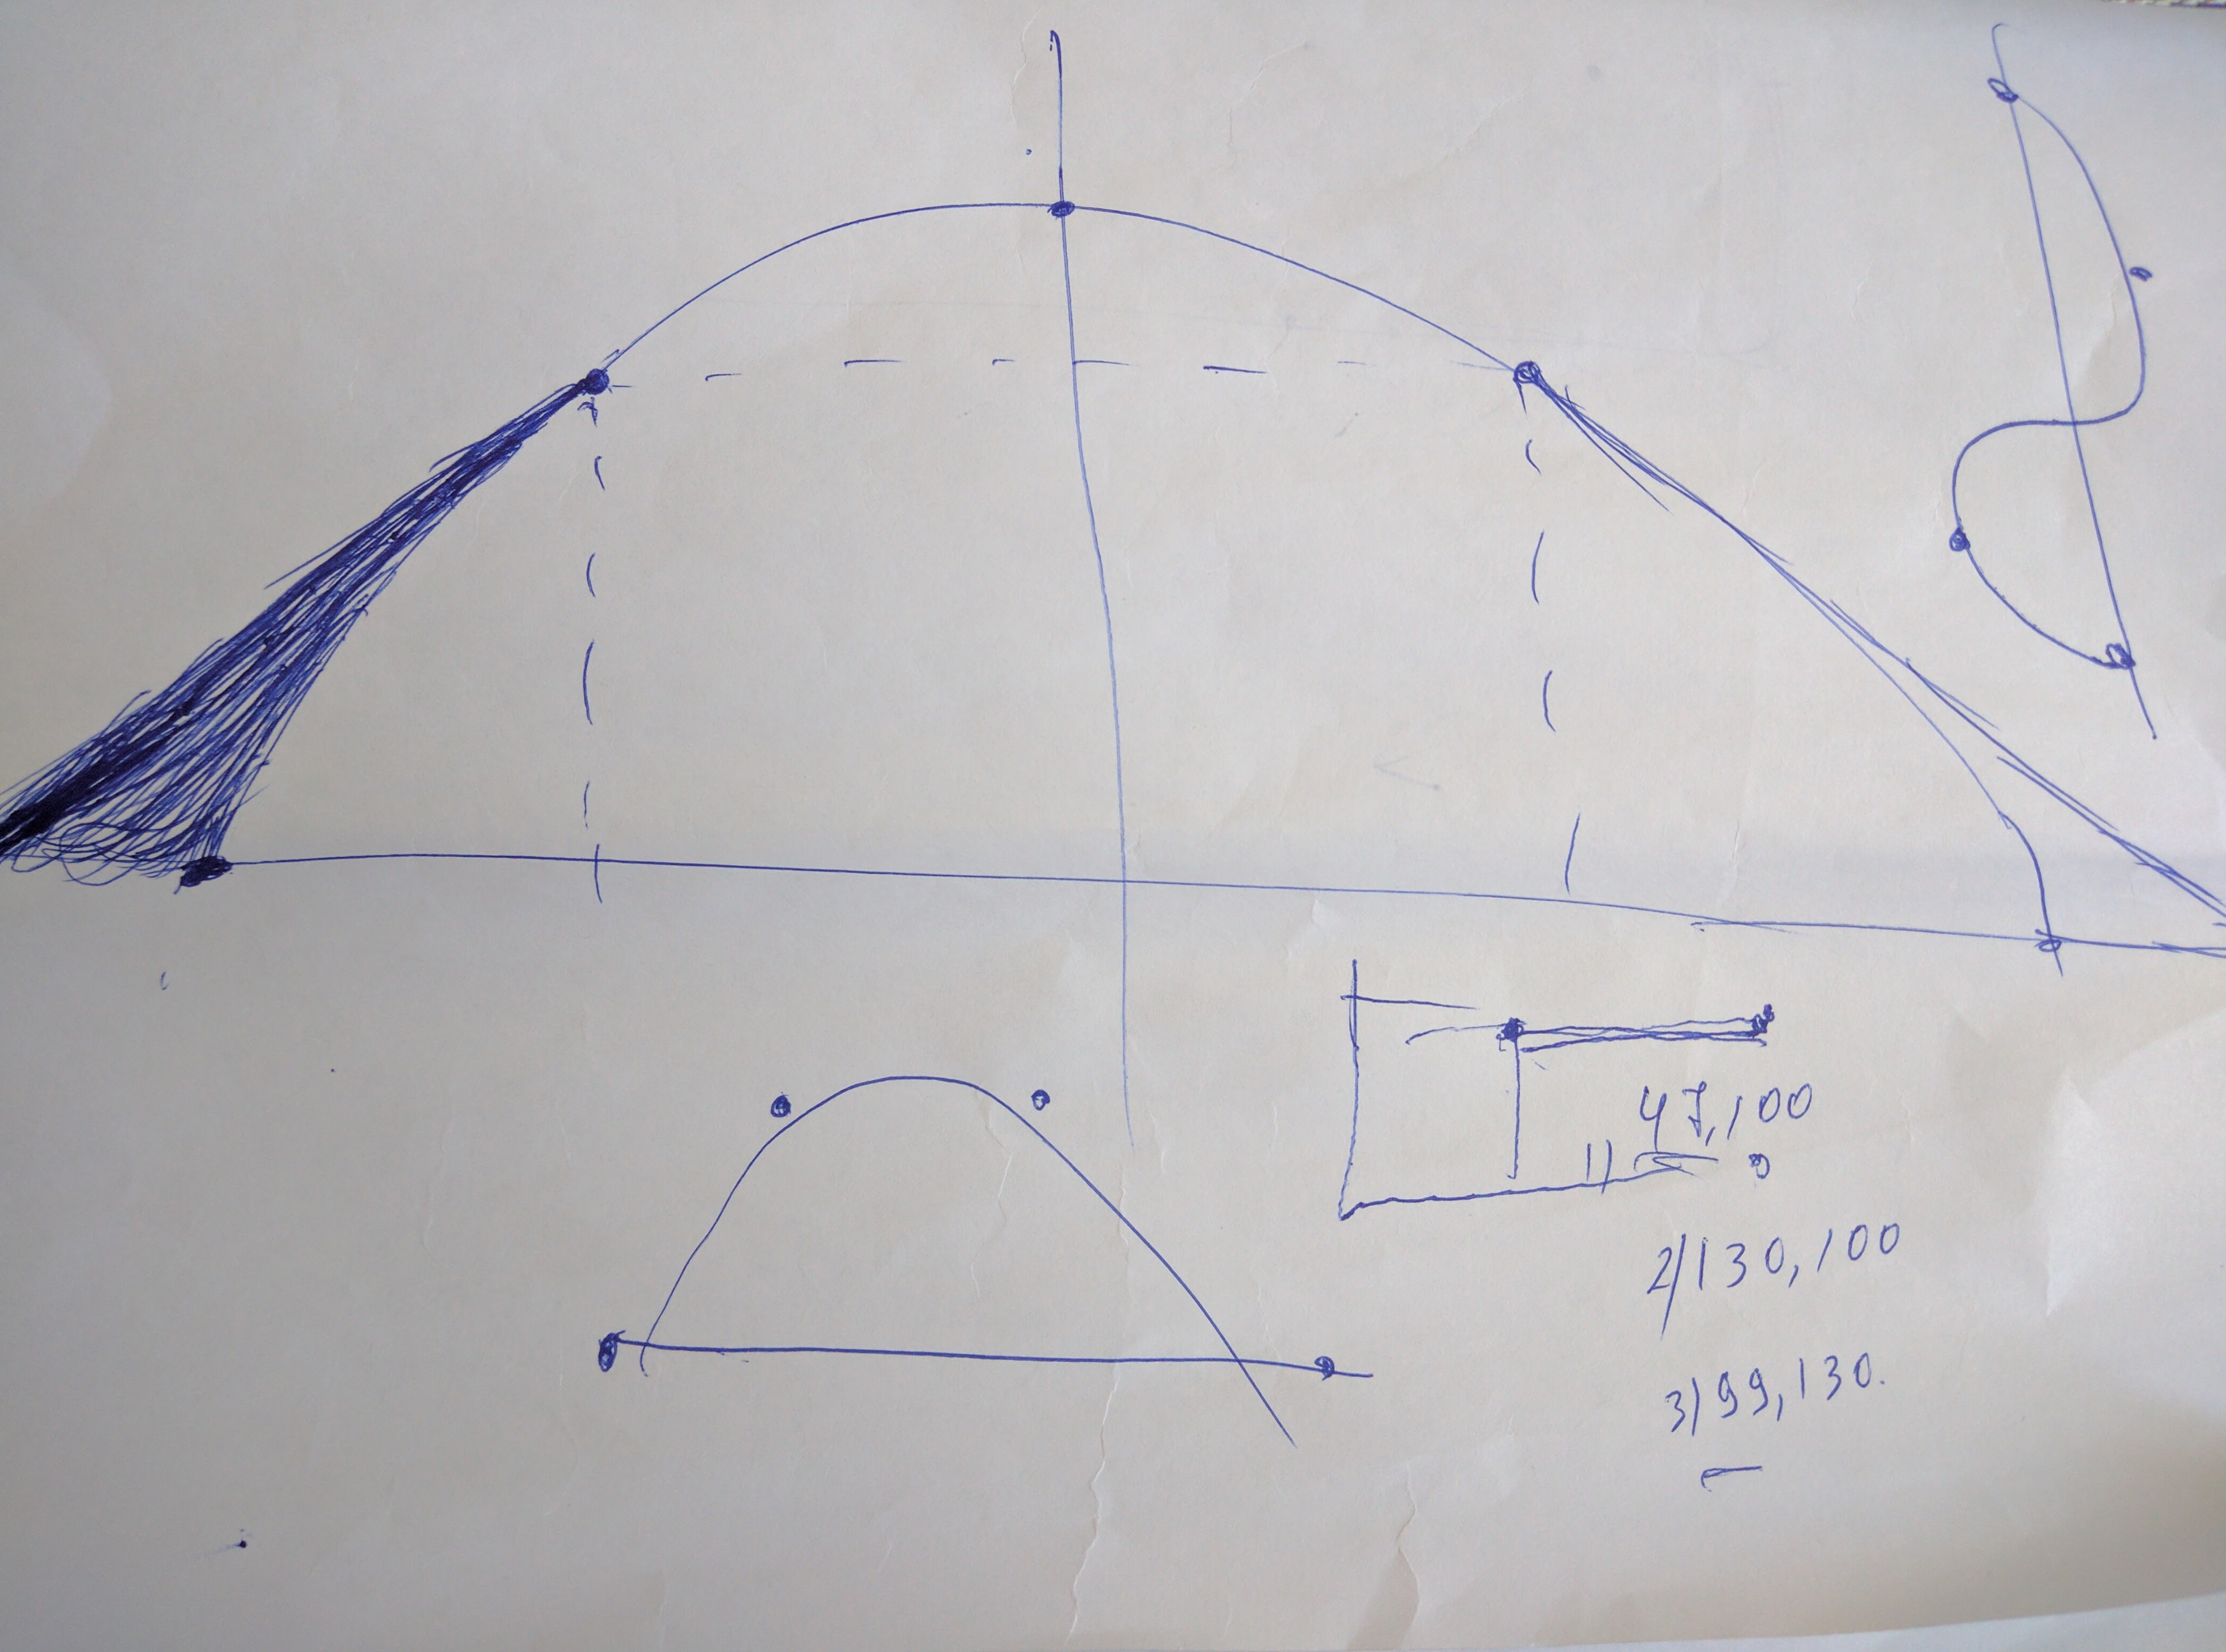 1) 47,100
2) 130,100
3) 99,130.